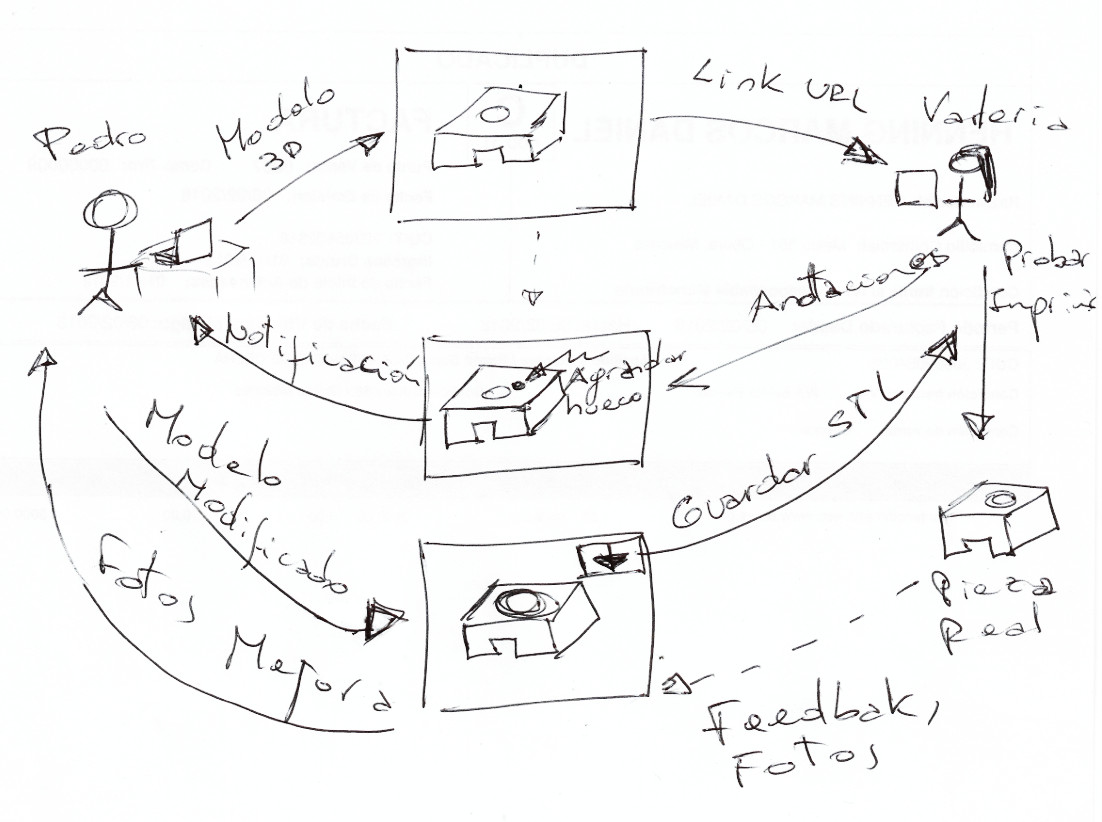 Pedro
Modelo
3D
Link URL
Valeria
Anotaciones
Probar
Imprimir
Notificación
Agrandar
hueco
Modelo
Modificado
Guardar STL
Fotos
Mejora
Pieza
Real
Feedbak,
Fotos